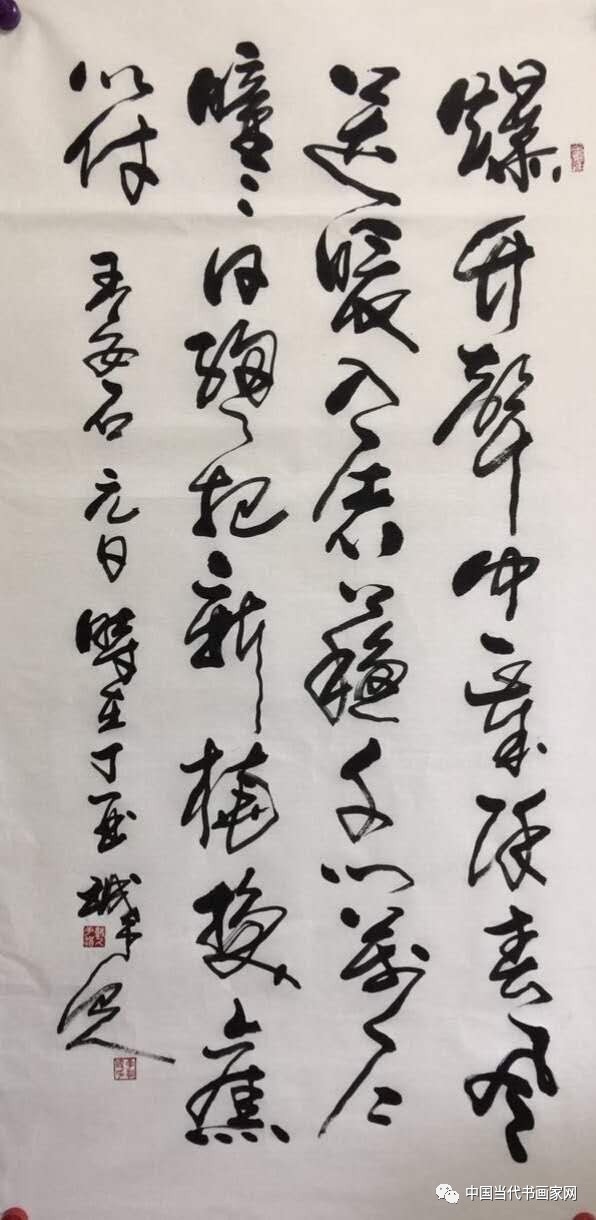 爆竹聲中一歲除春風
送暖入屠蘇千門萬戶
曈々日總把新桃換舊
符 王安石 元日 時在丁酉
中国当代书画家网